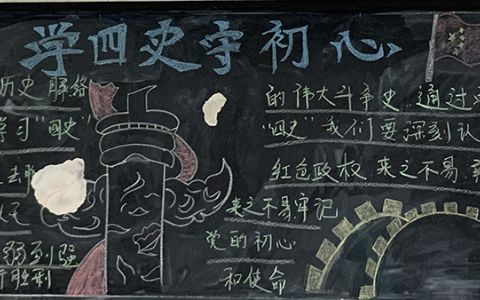 学四史守初心
历史 脉络
学习“四史”
弱到强
胜利
的伟大斗争史，通过
“四史”我们要深刻认
红色政权，来之不易，
来之不易牢记
党的初心
和使命